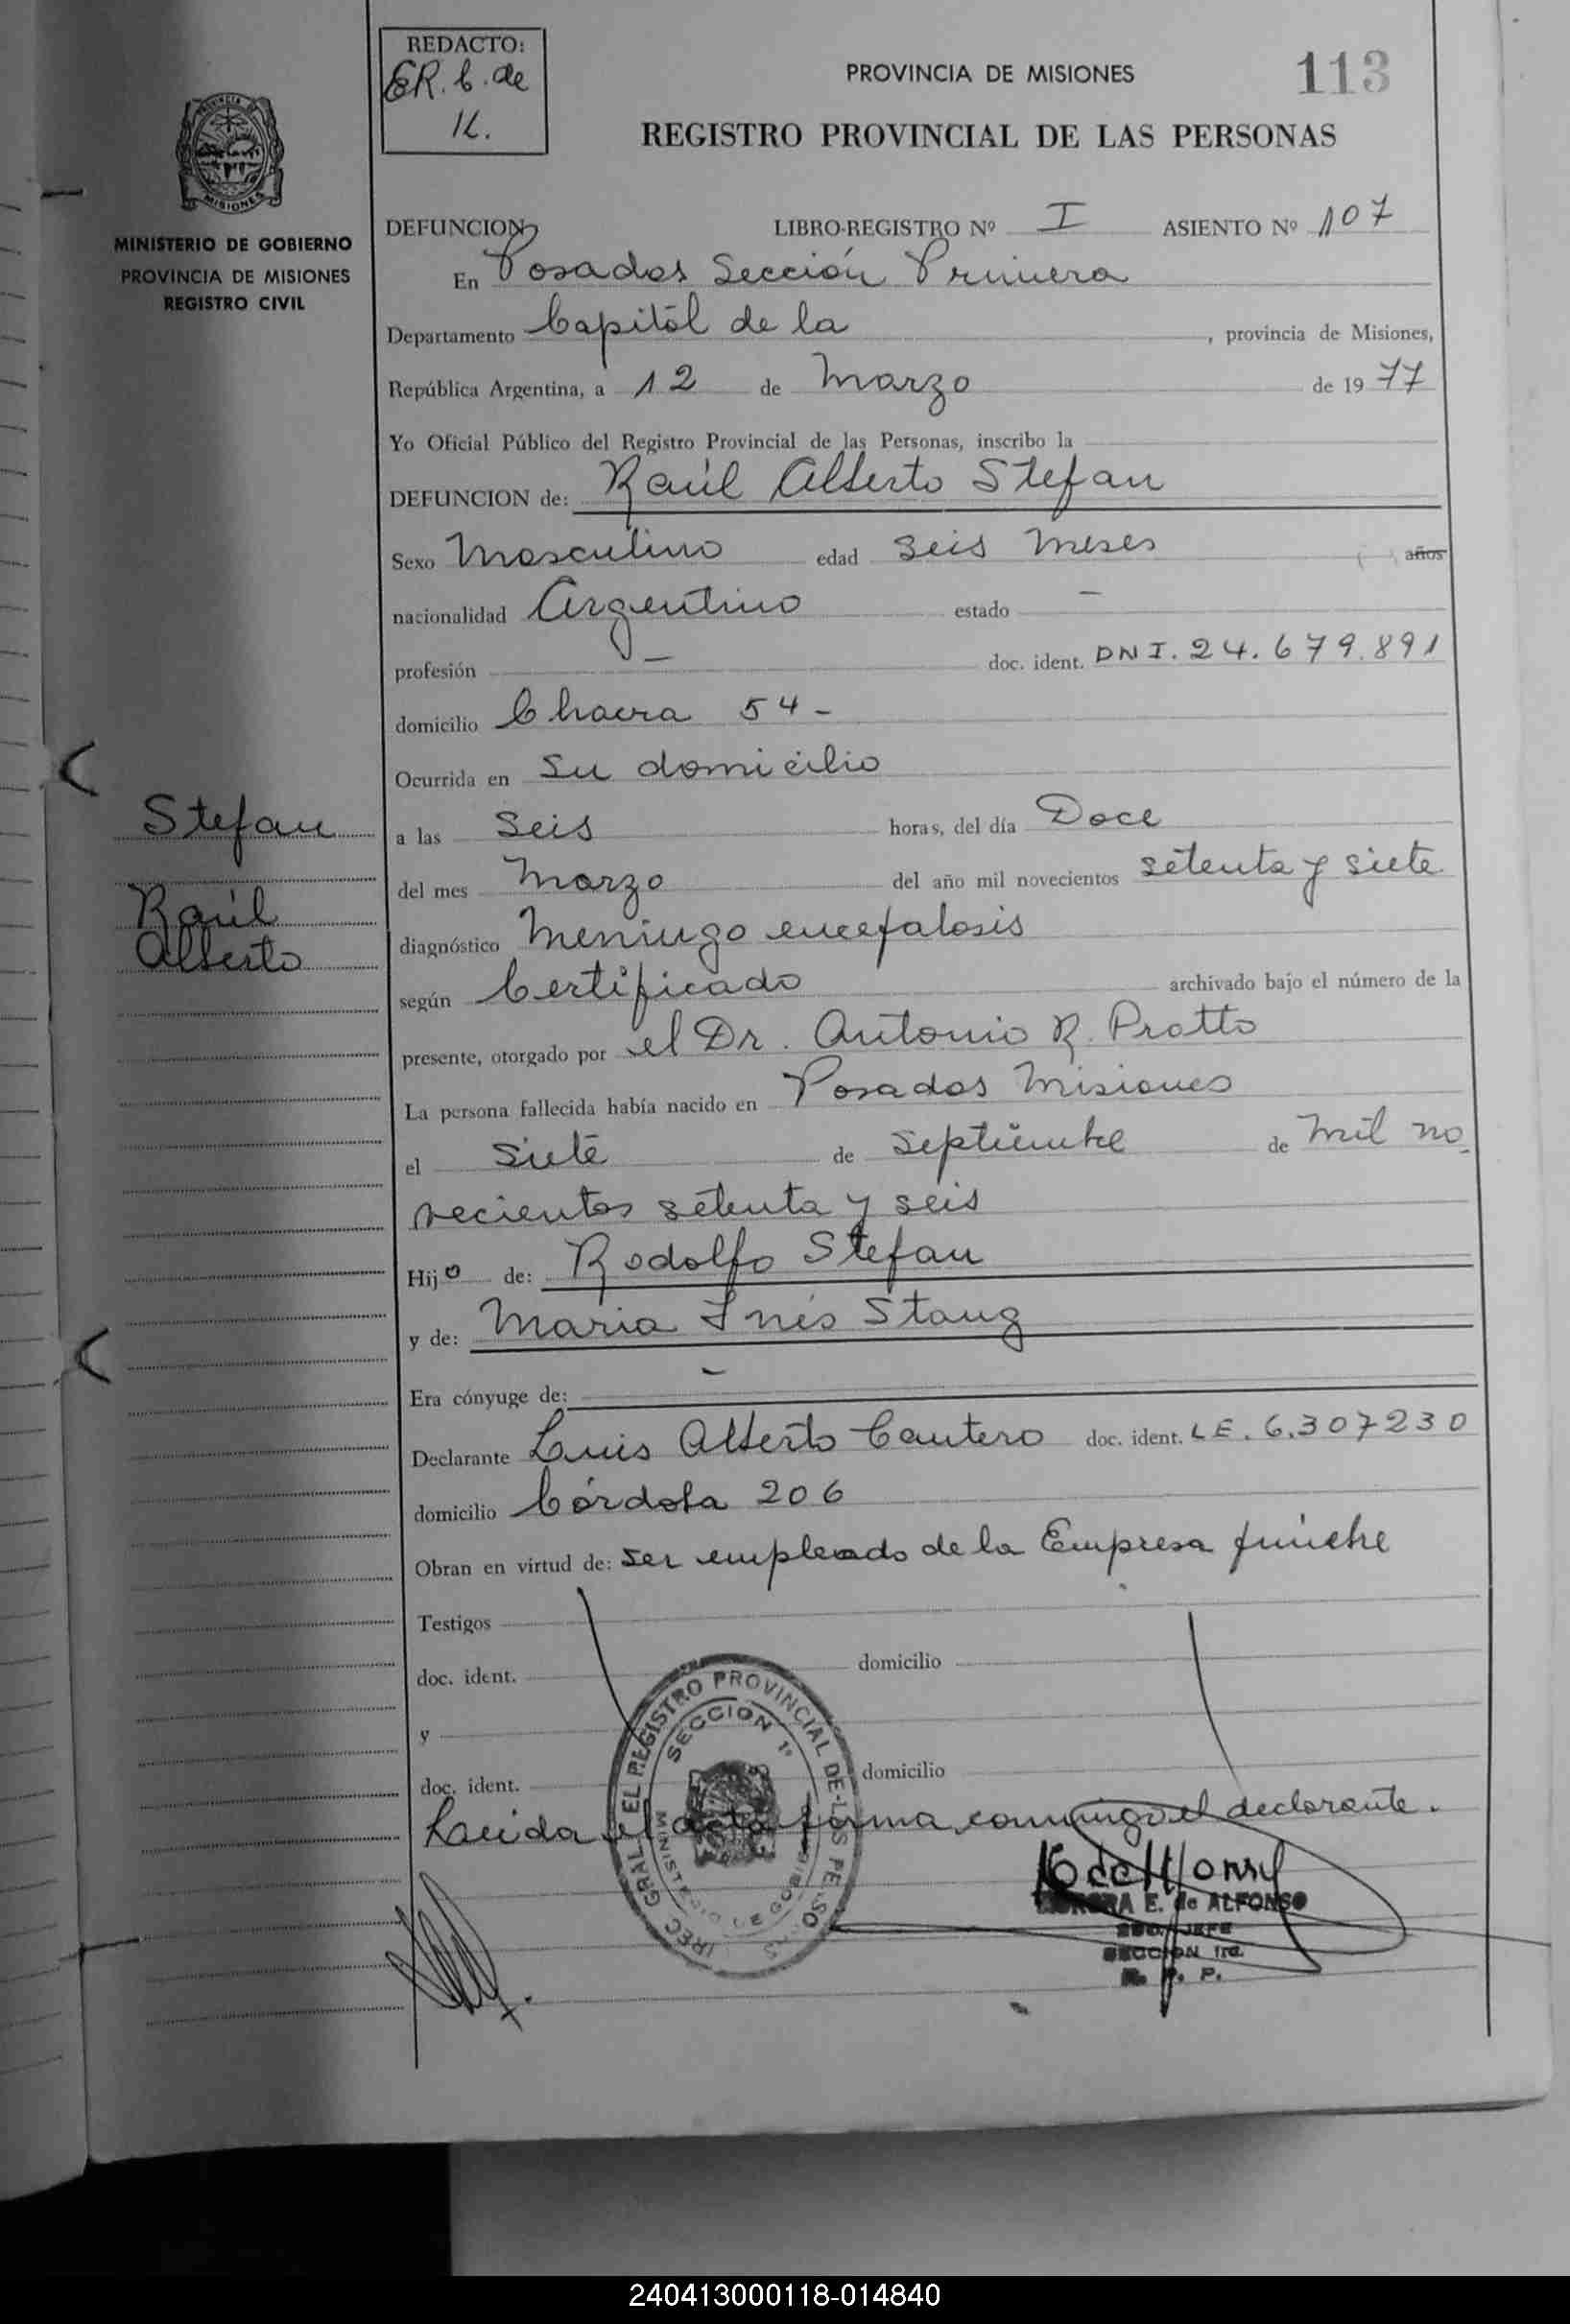 REDACTO:
ER. C. de
K.
PROVINCIA DE MISIONES
113
REGISTRO PROVINCIAL DE LAS PERSONAS
PROVINCIA DE
MISIONES
MINISTERIO DE GOBIERNO
PROVINCIA DE MISIONES
REGISTRO CIVIL
DEFUNCION LIBRO-REGISTRO Nº I ASIENTO Nº 107
En Posadas Sección Primera
Departamento Capital de la , provincia de Misiones,
República Argentina, a 12 de Marzo de 1977
Yo Oficial Público del Registro Provincial de las Personas, inscribo la
DEFUNCION de: Raúl Alberto Stefan
Sexo Masculino edad Seis meses años
nacionalidad Argentino estado —
profesión — doc. ident. DNI. 24.679.891
domicilio Chacra 54 -
Ocurrida en su domicilio
Stefan
Raúl
Alberto
a las Seis horas, del día Doce
del mes Marzo del año mil novecientos setenta y siete
diagnóstico Meningo encefalosis
según Certificado archivado bajo el número de la
presente, otorgado por el Dr. Antonio R. Protto
La persona fallecida había nacido en Posadas Misiones
el Siete de Septiembre de mil no
vecientos setenta y seis
Hijo de: Rodolfo Stefan
y de: Maria Inés Stang
Era cónyuge de: -
Declarante Luis Alberto Cantero doc. ident. LE. 6.307230
domicilio Córdoba 206
Obran en virtud de: ser empleado de la Empresa fúnebre
Testigos
doc. ident. domicilio
y
doc. ident. domicilio
Leida el acta firma conmigo el declarante.
REGISTRO PROVINCIAL DE LAS
SECCION 1º
E. de ALFONSO
JEFE
SECCION 1ra.
R. P. P.
240413000118-014840